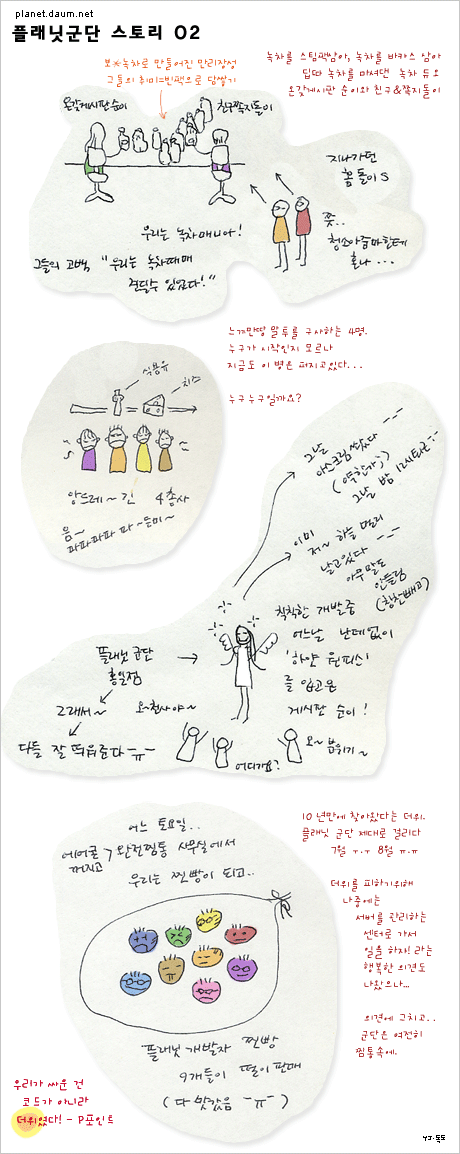 planet.daum.net
플래닛군단 스토리 02
녹차를 스팀팩삼아, 녹차를 바카스 삼아
입따 녹차를 마셔댄 녹차 듀오
온갖게시판 순이와 친구&쪽지돌이
보*녹차로 만들어진 만리장성
그들의 취미=빈팩으로 담쌓기
온갖게시판 순이
친구쪽지돌이
지나가던
홈돌이s
쯧..
청소아줌마한테
혼나...
우리는 녹차매니아!
그들의 고백 "우리는 녹차때매
견딜수 있었다!"
느끼만땅 말투를 구사하는 4명.
누구가 시작인지 모르나
지금도 이 병은 퍼지고있다...
누구누구일까요?
식용유
치즈
앙드레~ 긴 4총사
음~
파파파파 파~
그날
아스크림 쐈다
그날 밤 12시되니
이미
저~ 하늘 멀리
날고있다
아무말도
안들림
칙칙한 개발중
어느날 난데없이
'하얀 원피스'
를 입고온
게시판 순이!
플래닛 군단
홍일점
그래서~
다들 잘 띄워준다 -ㅠ-
오~천사야~
어디가요?
오~ 분위기~
어느 토요일..
에어콘 꺼지고
완전찜통 사무실에서
우리는 찐빵이 되고..
플래닛 개발자 찐빵
9개들이 떨이판매
(다 맛갔음 -ㅠ-)
10년만에 찾아왔다는 더위.
플래닛 군단 제대로 걸리다
7월 ㅜ.ㅜ 8월 ㅠ.ㅠ
더위를 피하기위해
나중에는
서버를 관리하는
센터로 가서
일을 하자! 라는
행복한 의견도
나왔으나...
의견에 그치고..
군단은 여전히
찜통속에.
우리가 싸운 건
코드가 아니라
더위였다! - P포인트